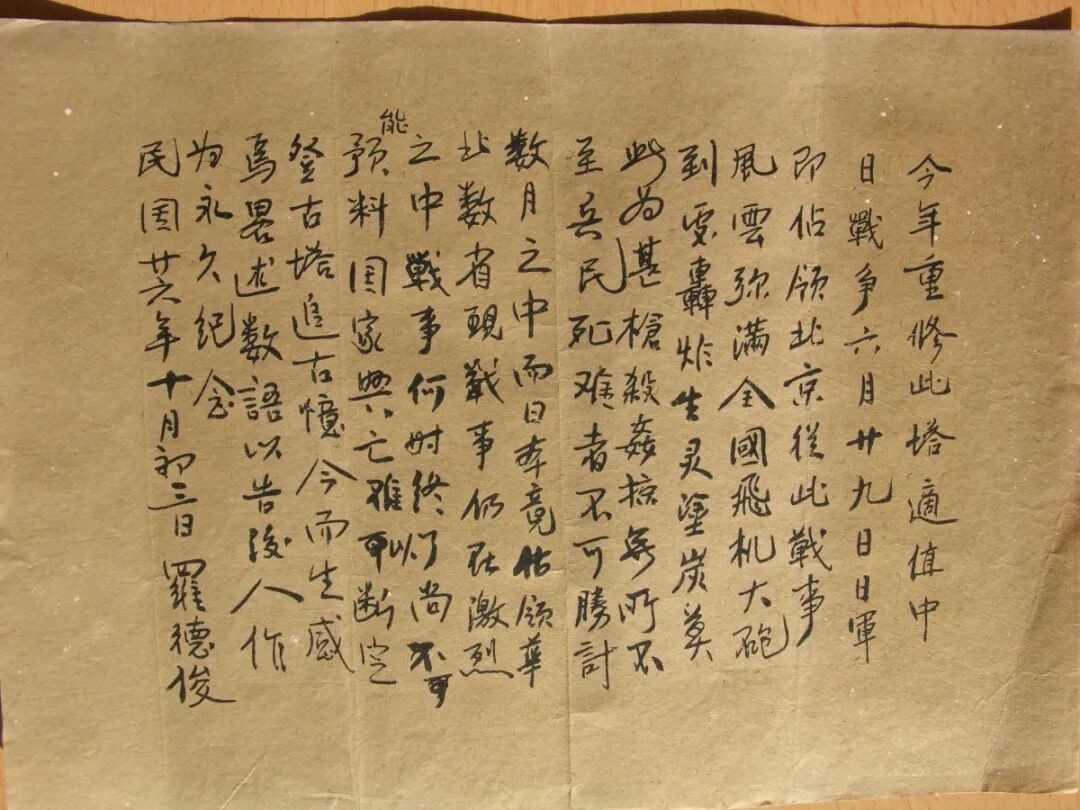 今年重修此塔適值中
日戰爭六月廿九日日軍
即佔领北京從此戰事
風雲弥满全國飛机大砲
到處轟炸生灵塗炭莫
此为甚槍殺姦掠無所不
至兵民死难者不可勝計
数月之中而日本竟佔领華
北数省現戰事仍在激烈
之中戰事何时終了尚不可
能预料国家興亡难以断定
登古塔追古憶今而生感
焉畧述数語以告後人作
为永久纪念
民国廿六年十月初三日羅德俊